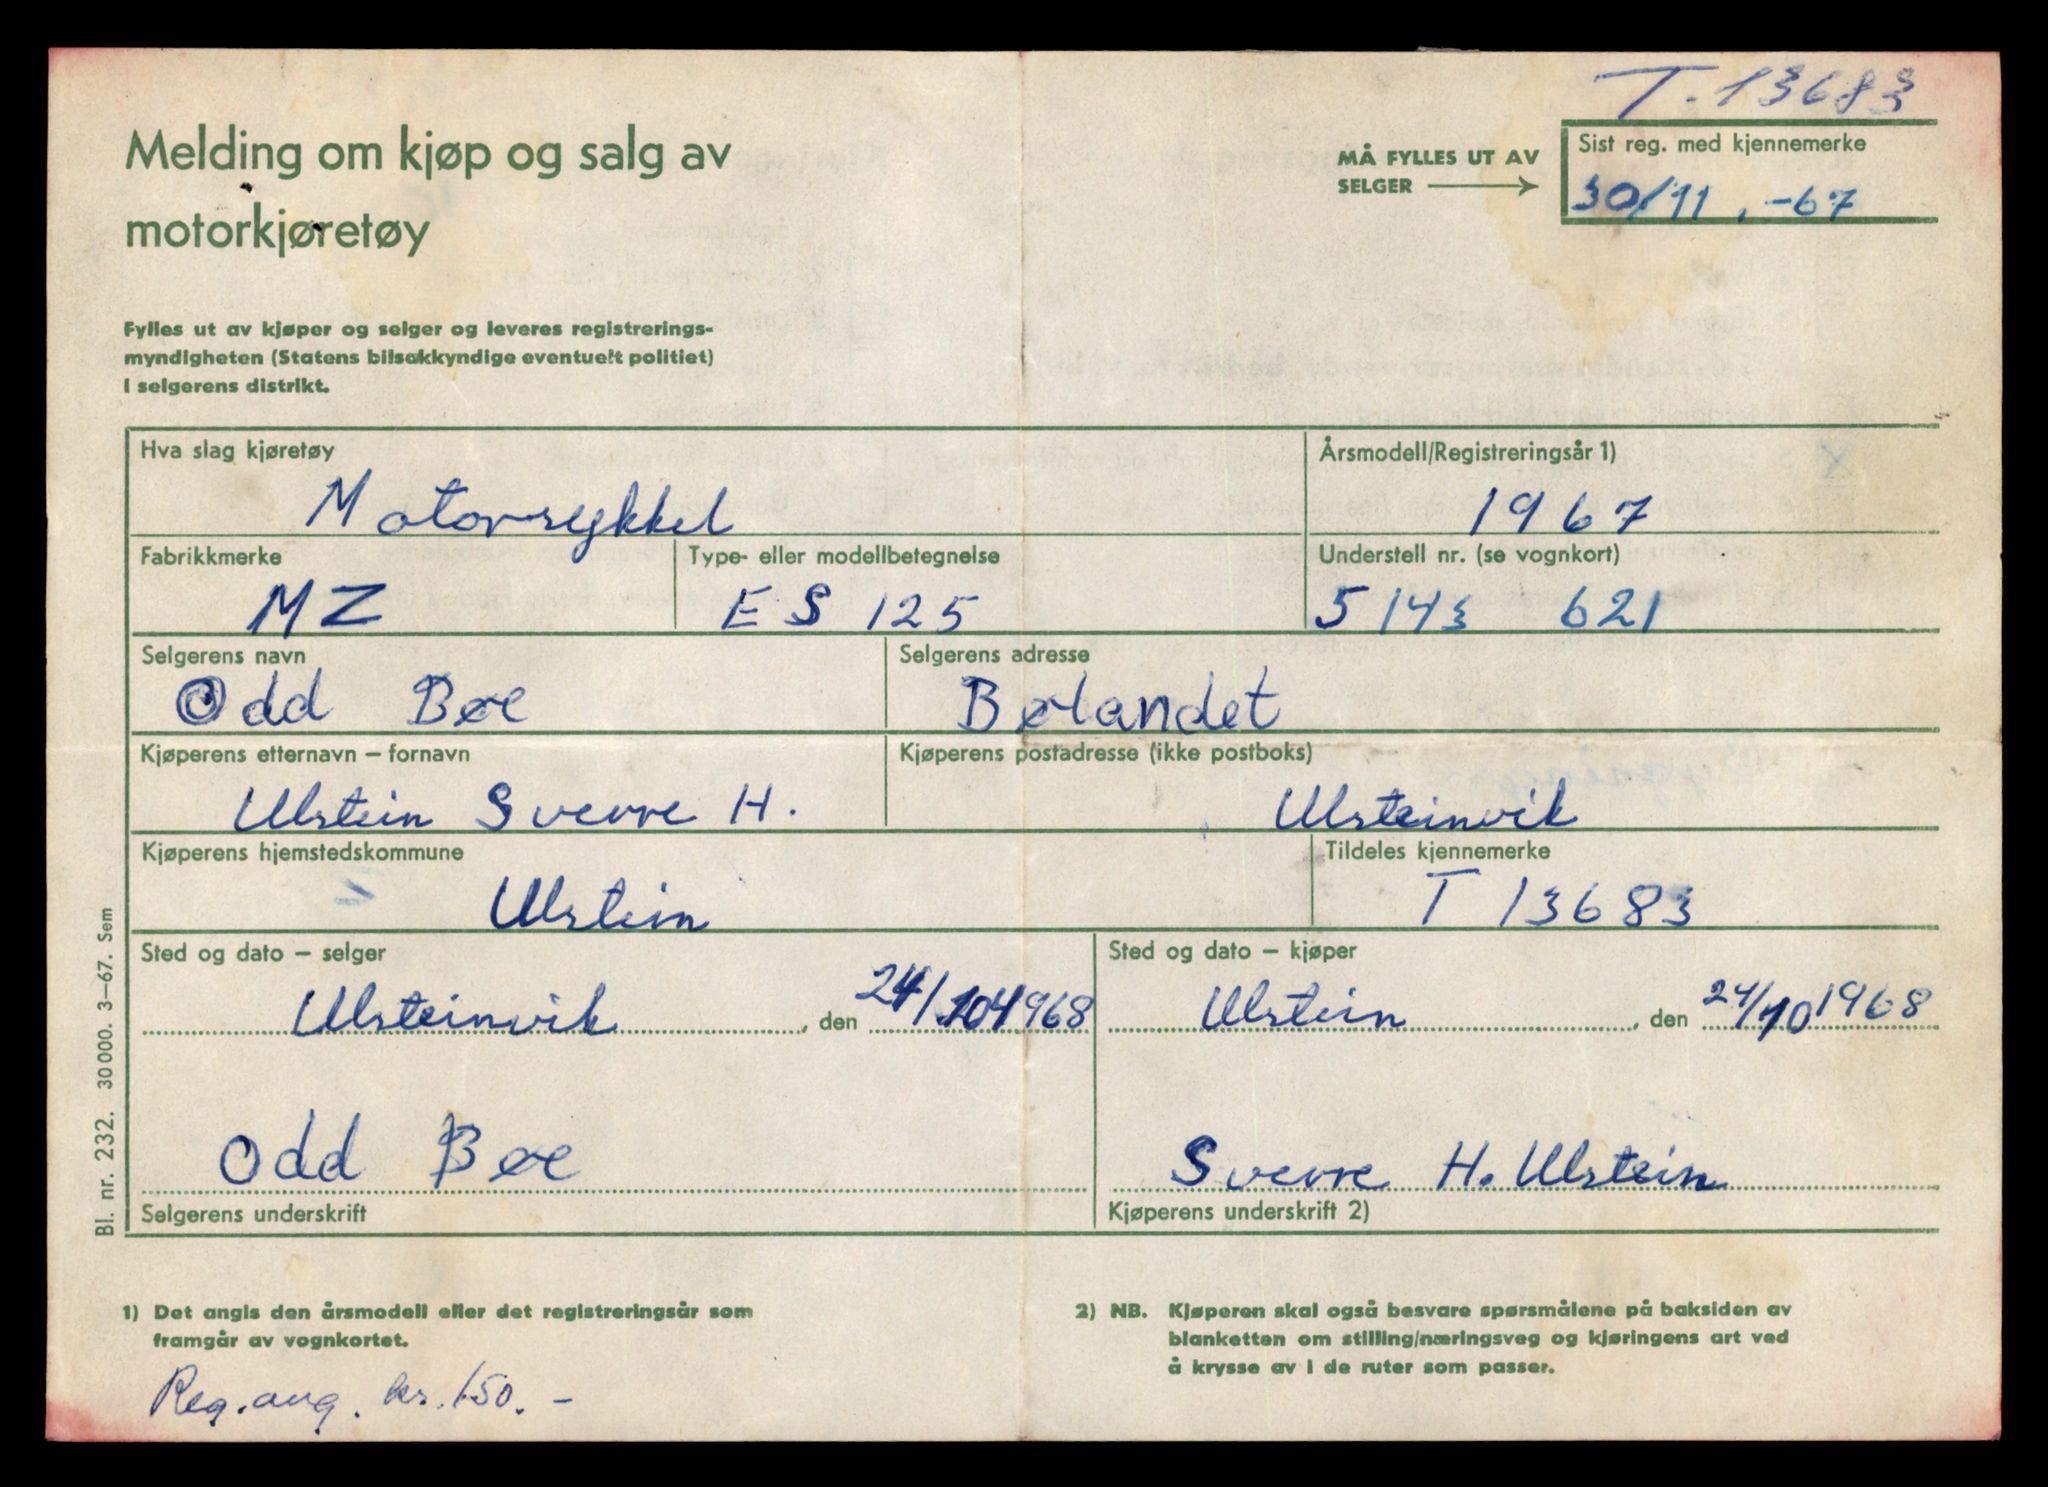 T. 13683
Melding om kjøp og salg av
motorkjøretøy
MÅ FYLLES UT AV
SELGER
Sist reg. med kjennemerke
30/11, -67
Fylles ut av kjøper og selger og leveres registrerings-
myndigheten (Statens bilsakkyndige eventuelt politiet)
i selgerens distrikt.
Hva slag kjøretøy
Motorsykkel
Årsmodell/Registreringsår 1)
1967
Fabrikkmerke
MZ
Type- eller modellbetegnelse
ES 125
Understell nr. (se vognkort)
5143 621
Selgerens navn
Odd Bøe
Selgerens adresse
Bølandet
Kjøperens etternavn – fornavn
Ulstein Sverre H.
Kjøperens postadresse (ikke postboks)
Ulsteinvik
Kjøperens hjemstedskommune
Ulstein
Tildeles kjennemerke
T 13683
Sted og dato – selger
Ulsteinvik, den 24/10 1968
Sted og dato – kjøper
Ulstein, den 24/10 1968
Odd Bøe
Selgerens underskrift
Sverre H. Ulstein
Kjøperens underskrift 2)
Bl. nr. 232. 30 000. 3–67. Sem
1) Det angis den årsmodell eller det registreringsår som
framgår av vognkortet.
2) NB. Kjøperen skal også besvare spørsmålene på baksiden av
blanketten om stilling/næringsveg og kjøringens art ved
å krysse av i de ruter som passer.
Reg. avg. kr. 150. -